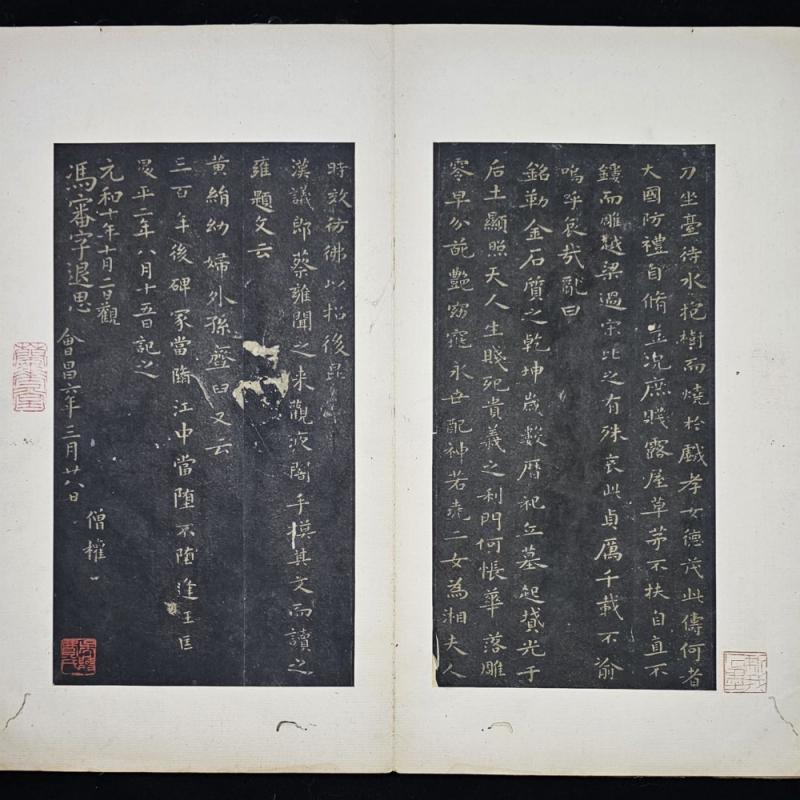 刀坐臺待水抱樹而燒於戲孝女德茂此儔何者
大國防禮自脩豈況庶賤露屋草茅不扶自直不
鏤而雕越梁過宋比之有殊哀此貞厲千載不渝
嗚呼哀哉亂曰
銘勒金石質之乾坤歲數曆祀丘墓起墳光于
后土顯照天人生賤死貴義之利門何悵華落雕
零早分葩艷窈窕永世配神若堯二女為湘夫人
時效仿佛以招後昆
漢議郎蔡雍聞之来觀夜闇手摸其文而讀之
雍題文云
黃絹幼婦外孫虀臼又云
三百年後碑冢當墮江中當墮不墮逢王叵
昇平二年八月十五日記之
元和十年十月二日觀
馮審字退思
會昌六年三月廿八日
僧權